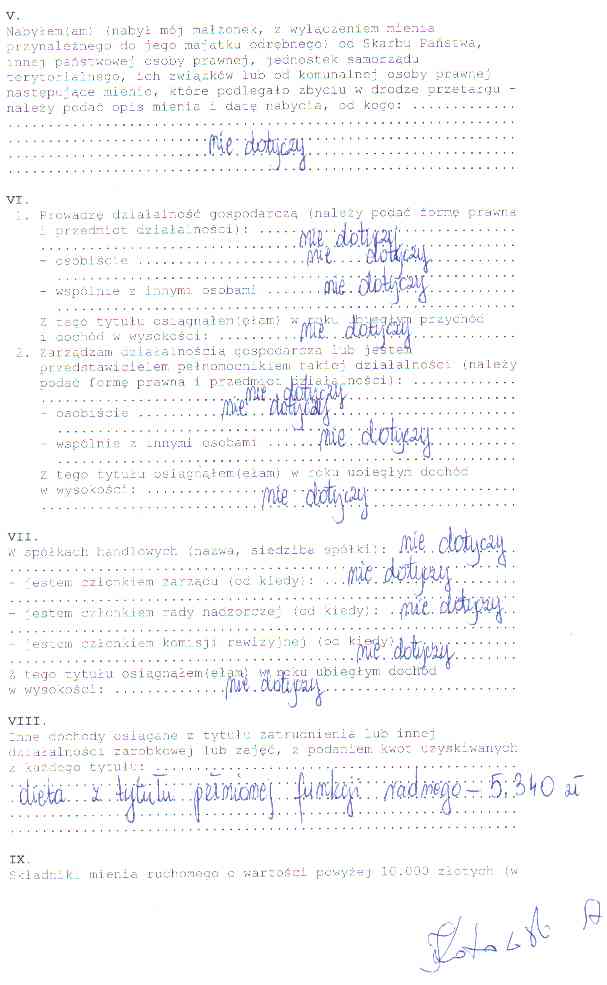 V.
Nabyłem(am) (nabył mój małżonek, z wyłączeniem mienia
przynależnego do jego majątku odrębnego) od Skarbu Państwa,
innej państwowej osoby prawnej, jednostek samorządu
terytorialnego, ich związków lub od komunalnej osoby prawnej
następujące mienie, które podlegało zbyciu w drodze przetargu -
należy podać opis mienia i datę nabycia, od kogo: .............
nie dotyczy
VI.
1. Prowadzę działalność gospodarczą (należy podać formę prawną
i przedmiot działalności): ......
nie dotyczy
- osobiście ...... nie dotyczy
- wspólnie z innymi osobami ...... nie dotyczy
Z tego tytułu osiągnąłem(ęłam) w roku ubiegłym przychód
i dochód w wysokości: ...... nie dotyczy
2. Zarządzam działalnością gospodarczą lub jestem
przedstawicielem pełnomocnikiem takiej działalności (należy
podać formę prawną i przedmiot działalności): .............
nie dotyczy
- osobiście ...... nie dotyczy
- wspólnie z innymi osobami ...... nie dotyczy
Z tego tytułu osiągnąłem(ęłam) w roku ubiegłym dochód
w wysokości: ......
nie dotyczy
VII.
W spółkach handlowych (nazwa, siedziba spółki): nie dotyczy
- jestem członkiem zarządu (od kiedy): ... nie dotyczy
- jestem członkiem rady nadzorczej (od kiedy): . nie dotyczy
- jestem członkiem komisji rewizyjnej (od kiedy)
nie dotyczy
Z tego tytułu osiągnąłem(ęłam) w roku ubiegłym dochód
w wysokości: ...... nie dotyczy
VIII.
Inne dochody osiągane z tytułu zatrudnienia lub innej
działalności zarobkowej lub zajęć, z podaniem kwot uzyskiwanych
z każdego tytułu: ......
dieta z tytułu pełnionej funkcji radnego - 5.340 zł
IX.
Składniki mienia ruchomego o wartości powyżej 10.000 złotych (w